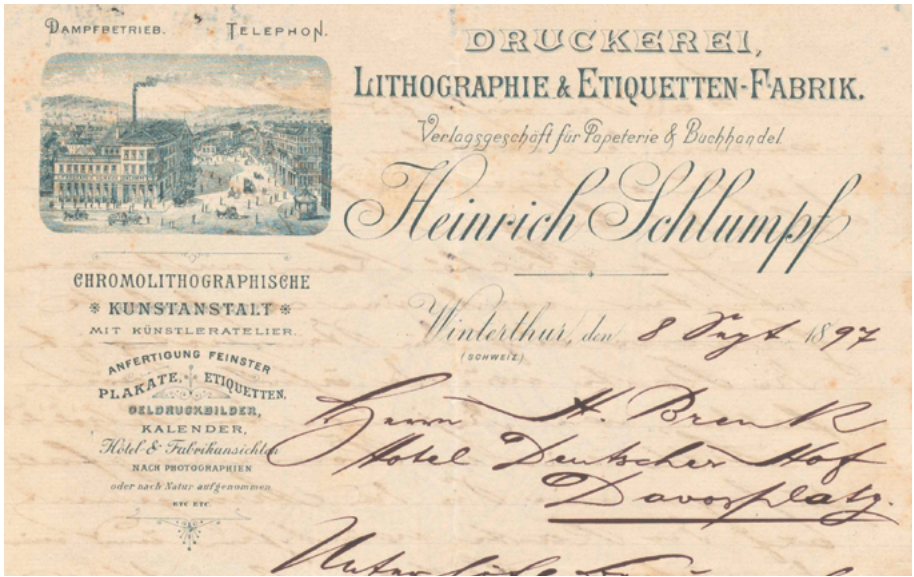 DAMPFBETRIEB. TELEPHON.
DRUCKEREI,
LITHOGRAPHIE & ETIQUETTEN-FABRIK.
Verlagsgeschäft für Papeterie & Buchhandel.
Heinrich Schlumpf
CHROMOLITHOGRAPHISCHE
* KUNSTANSTALT *
MIT KÜNSTLERATELIER.
ANFERTIGUNG FEINSTER
PLAKATE, ETIQUETTEN,
OELDRUCKBILDER,
KALENDER,
Hôtel- & Fabrikansichten
NACH PHOTOGRAPHIEN
oder nach Natur aufgenommen
ETC ETC.
Winterthur, den 8 Sept 1897
(SCHWEIZ)
Herrn H. Brenk
Hotel Deutscher Hof
Davosplatz.